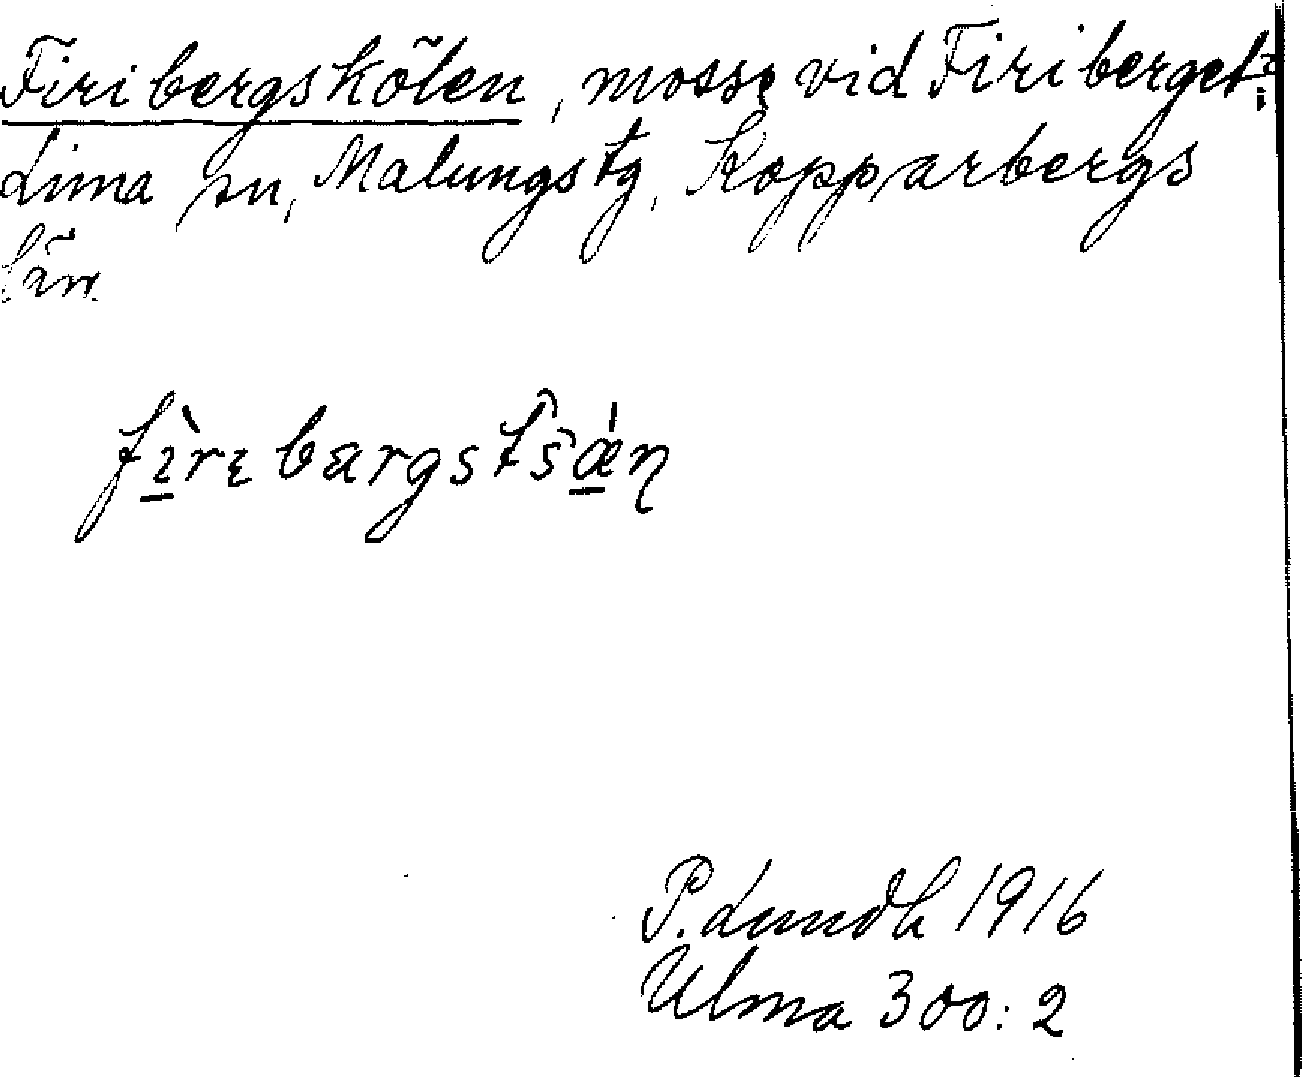 Firibergskölen, mosse vid Firiberget i
Lima sn, Malungs tg, Kopparbergs
län.
fìrɪbærgstŝǽn
P. Lundh 1916
Ulma 300:2